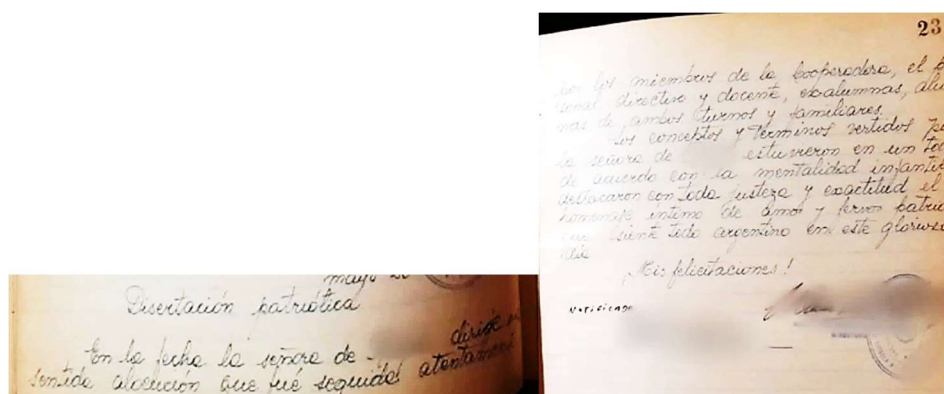 mayo
Disertación patriótica
En la fecha la señora de dirige
sentida alocución que fué seguida atentamen
23
por los miembros de la Cooperadora, el p
sonal directivo y docente, exalumnas, alu
nas de ambos turnos y familiares.
Los conceptos y términos vertidos po
la señora de estuvieron en un tod
de acuerdo con la mentalidad infantil
destacaron con toda justeza y exactitud el
homenaje íntimo de amor y fervor patrió
que siente todo argentino en este glorioso
día
¡Mis felicitaciones!
Notificada